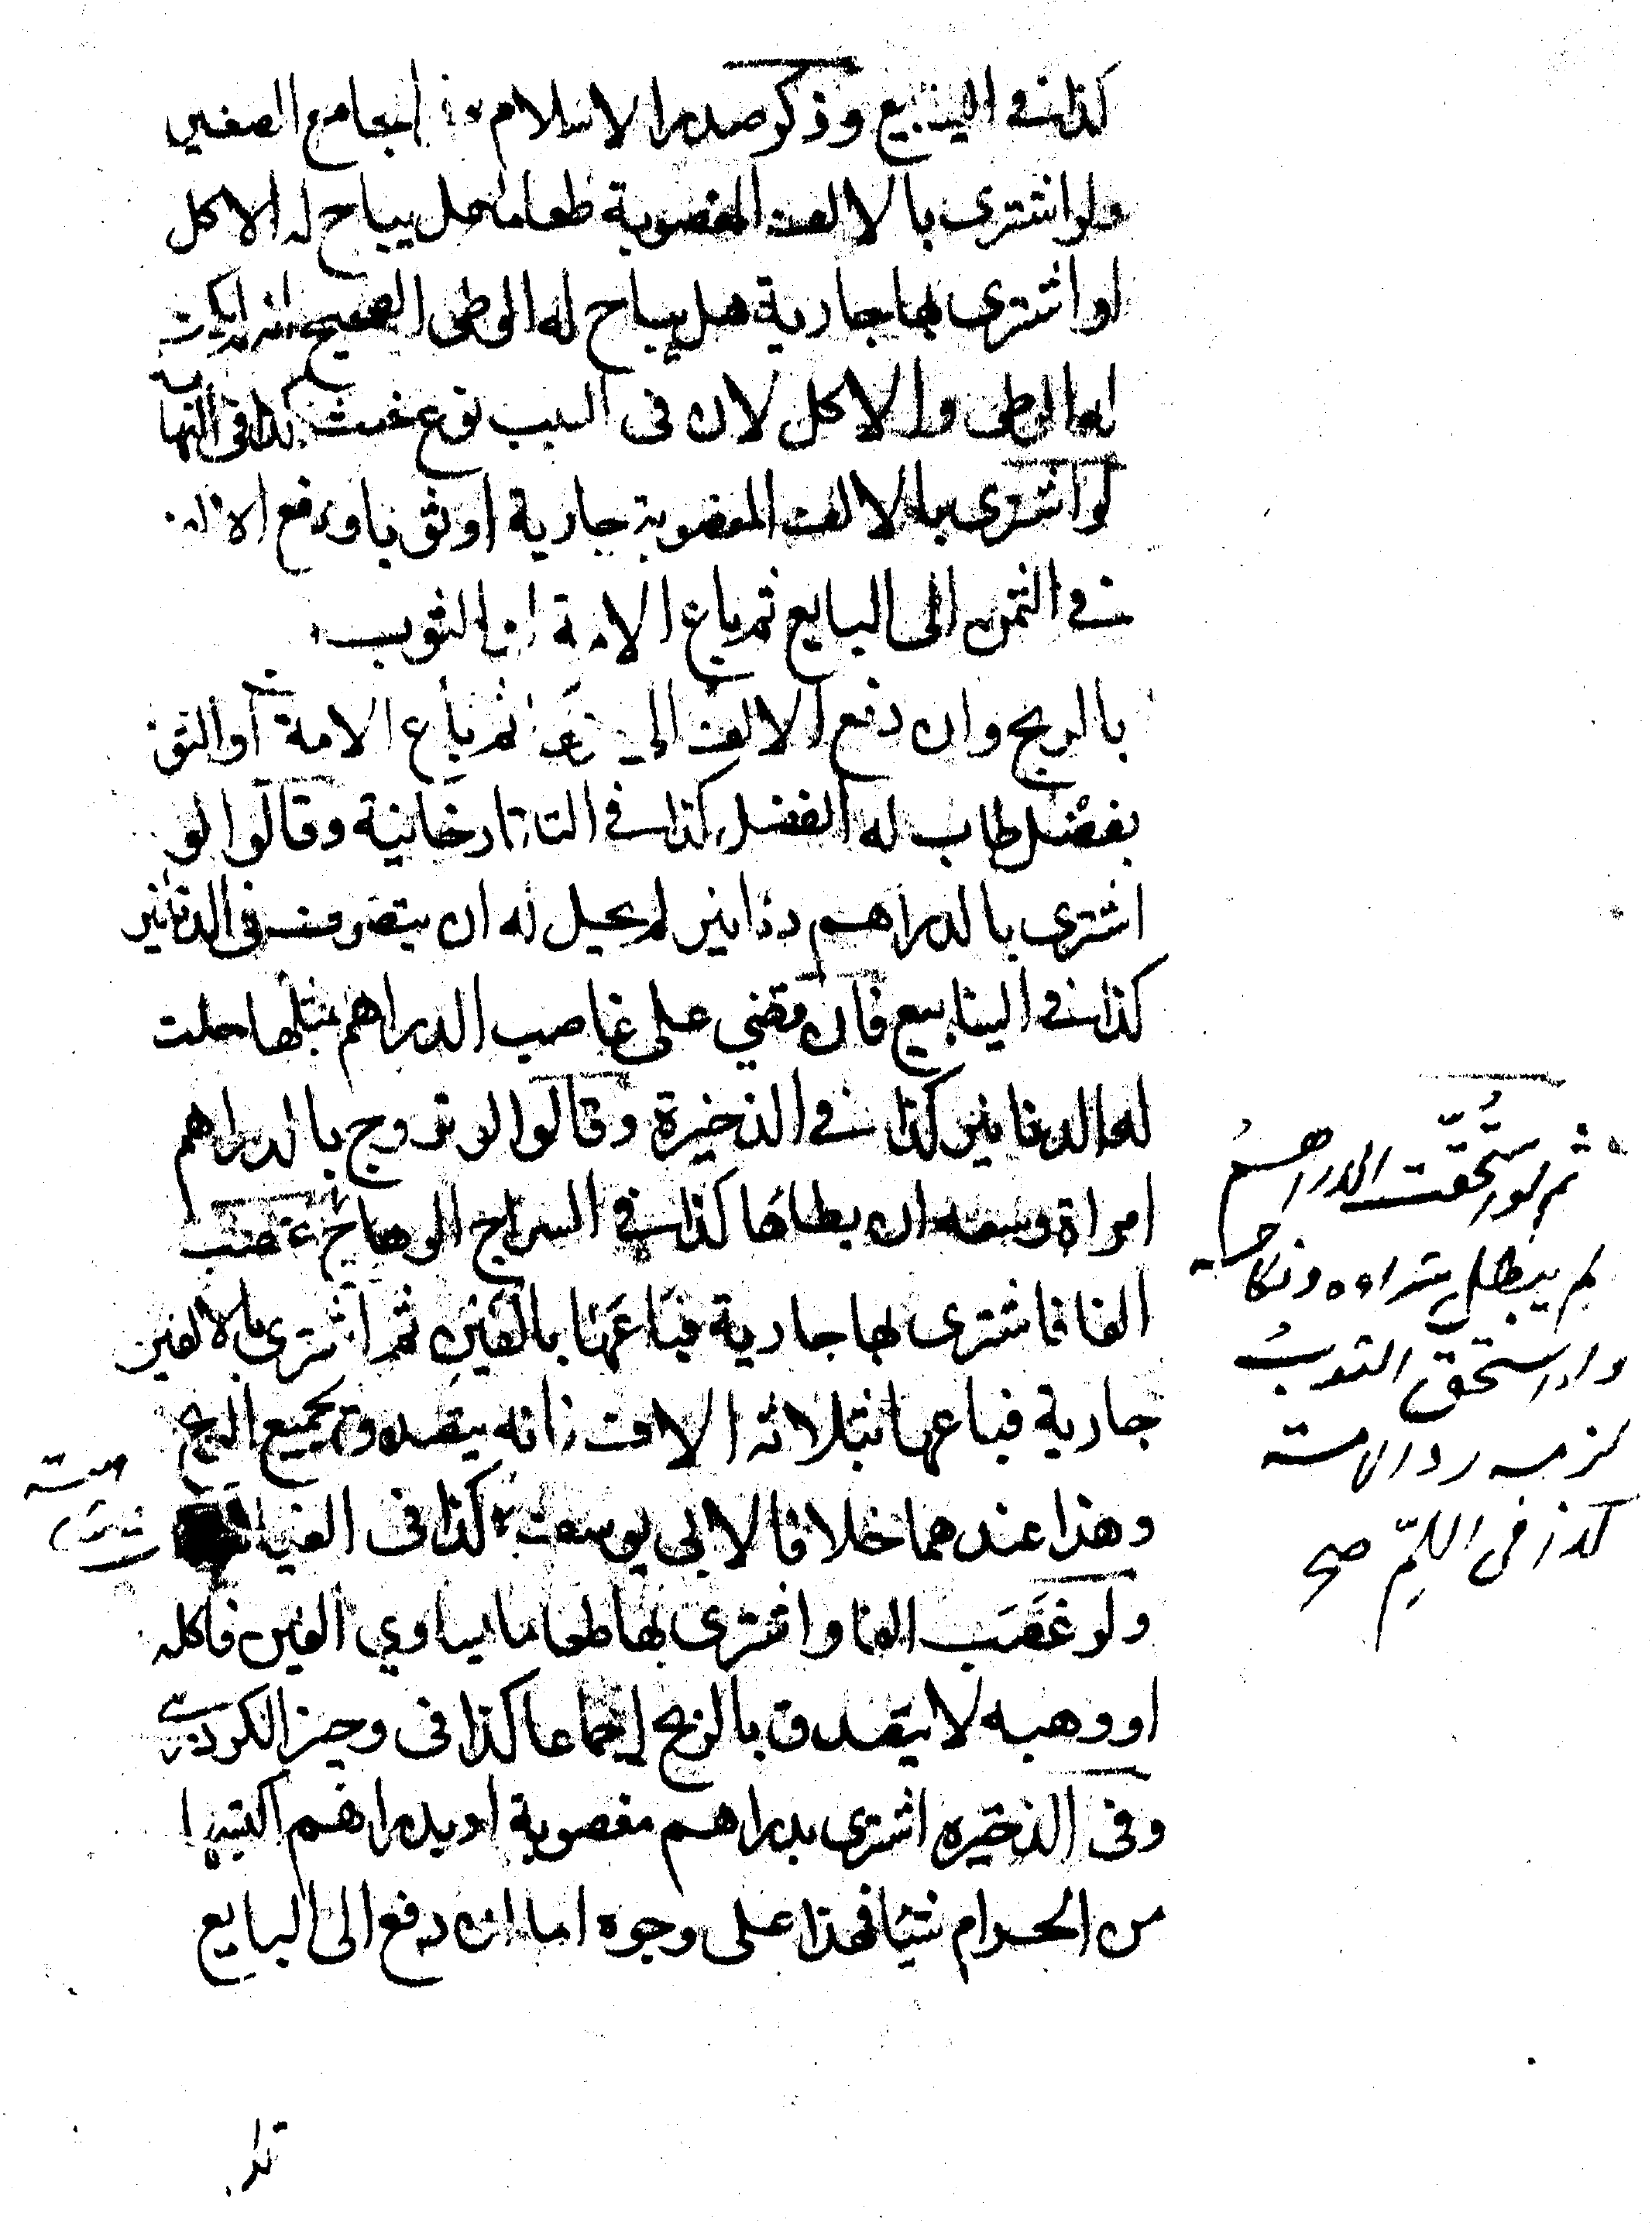 كذا في الينابيع وذكر صدر الاسلام في الجامع الصغير
ولو اشترى بالالف المغصوبة طعاما هل يباح له الاكل
او اشترى بها جارية هل يباح له الوطى الصحيح انه
الوطى والاكل لان فى السبب نوع خبث كذا فى النهاية
لو اشترى بالالف المغصوبة جارية او ثوبا ودفع الالف
في الثمن الى البايع ثم باع الامة او الثوب
بالربح وان دفع الالف الى ثم باع الامة او الثوب
بفضل طاب له الفضل كذا في التاتارخانية وقالوا لو
اشترى بالدراهم دنانير لم يحل له ان يتصرف فى الدنانير
كذا في الينابيع فان قضي على غاصب الدراهم بمثلها حلت
له الدنانير كذا في الذخيرة وقالوا لو تزوج بالدراهم
امراة وسعه ان يطاها كذا في السراج الوهاج غصب
الفا فاشترى بها جارية فباعها بالفين ثم اشترى بالالفين
جارية فباعها بثلاثه الاف انه يتصدق بجميع الربح
وهذا عندهما خلافا لابى يوسف كذا فى الغياثية
ولو غصب الفا واشترى بها طعاما يساوي الفين فاكله
او وهبه لا يتصدق بالربح اجماعا كذا فى وجيز الكردرى
وفى الذخيره اشترى بدراهم مغصوبة او بدراهم اكتسبها
من الحرام شيئا فهذا على وجوه اما ان دفع الى البايع
ثم لو استحقت الدراهم
لم يبطل شراوه ونكاحه
وان استحق الثوب
لزمه رد الامة
كذا فى صح